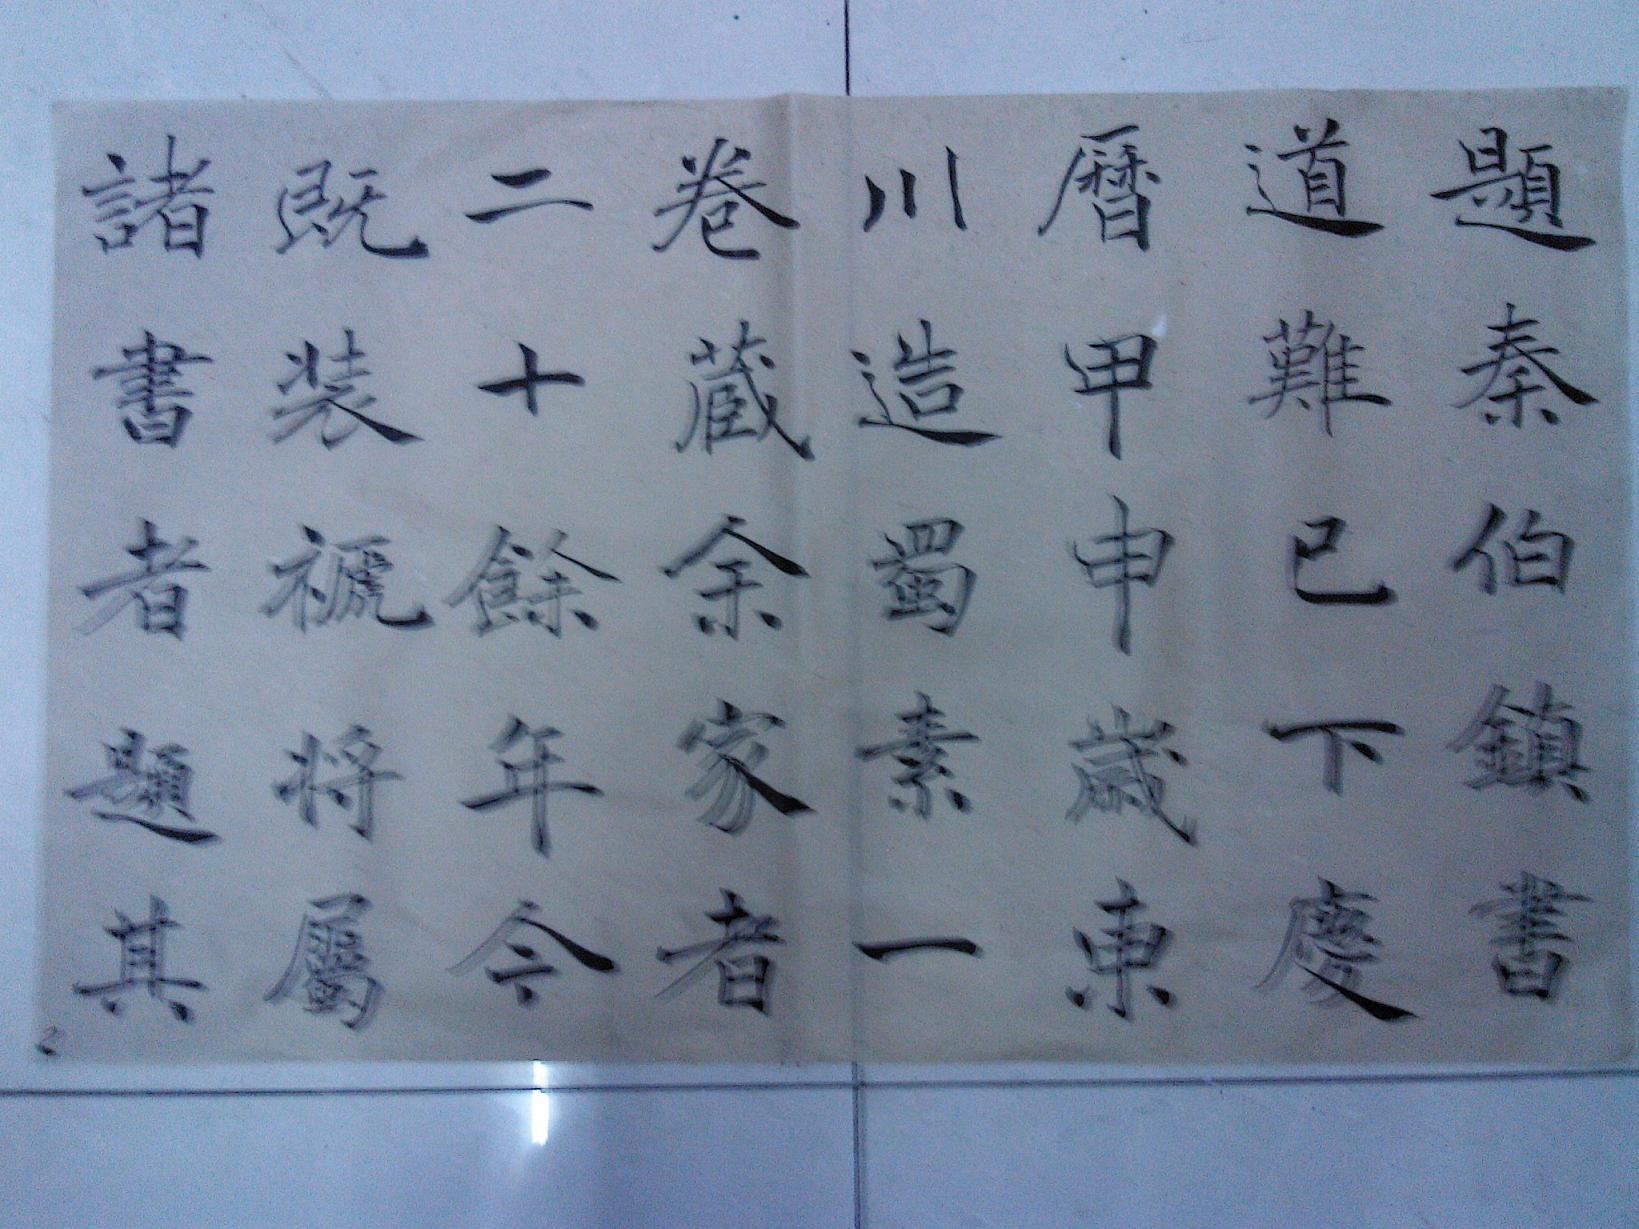 題秦伯鎮書
道難已下慶
曆甲申歲東
川造蜀素一
卷蔵余家者
二十餘年今
既装褫將屬
諸書者題其
2